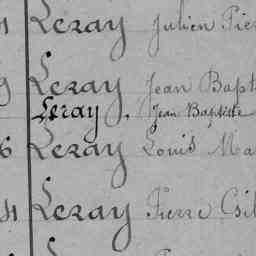 Leray Julien Pier
Leray Jean Bapt
Leray, Jean Baptiste
6 Leray Louis Ma
Leray Pierre